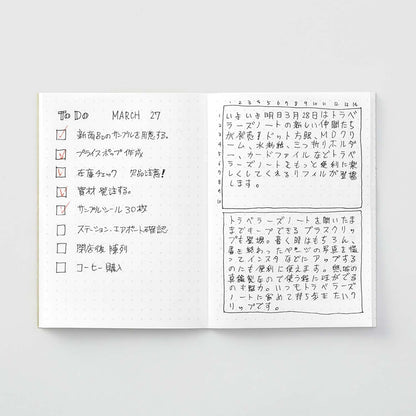 To Do MARCH 27
新商品のサンプルを用意する。
プライスポップ作成
在庫チェック 欠品注意!
資材発注する。
サンプルシール 30枚
ステーション・エアポート確認
閉店後 陳列
コーヒー購入
1 2 3 4 5 6 7 8 9 10 11 12 13 14
いよいよ明日3月28日はトラベ
ラーズノートの新しい仲間たち
が発売!ドット方眼、MDクリ
ーム、水彩紙、三つ折りホルダ
ー、カードファイルなどトラベ
ラーズノートをもっと便利に楽
しくしてくれるリフィルが登場
します。
トラベラーズノートを開いたま
までキープできるブラスクリッ
プも登場。書く時はもちろん、
書き終わったページの写真を撮
ってインスタなどにアップする
のにも便利に使えます。
のも魅力。いつもトラベラーズ
ノートに留めて持ち歩きたいク
リップです。